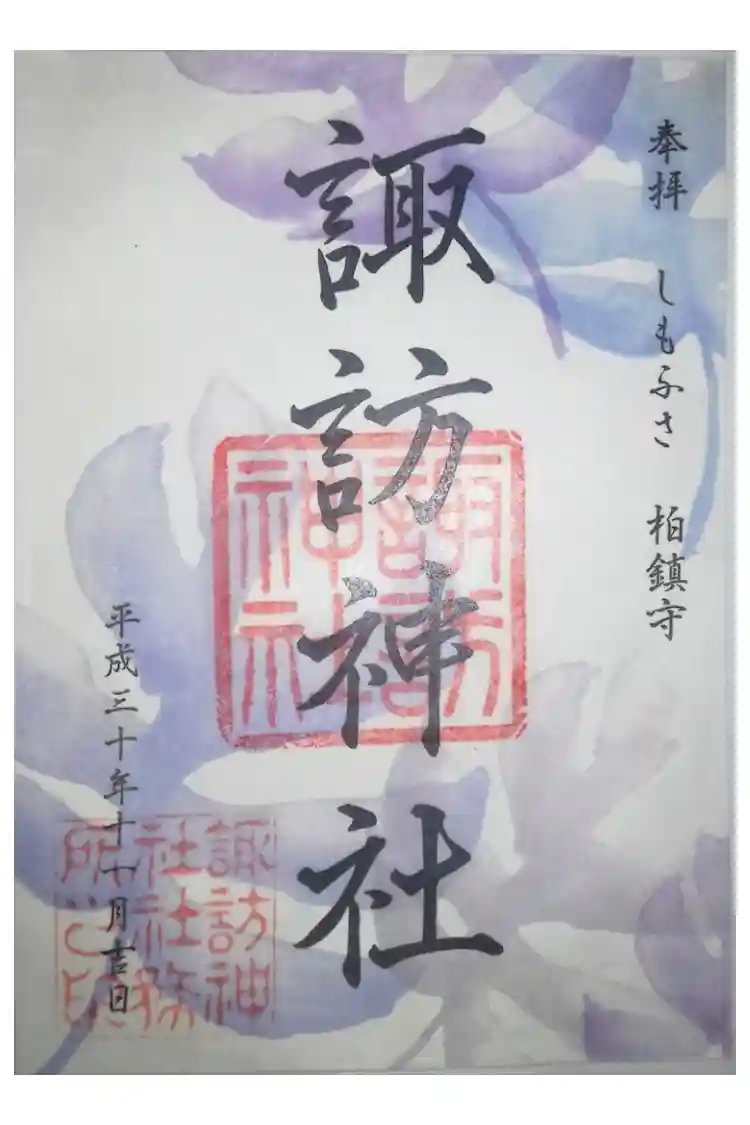 奉拝 しもふさ 柏鎮守
諏訪神社
諏訪
神社
平成三十年十一月吉日
諏訪神
社社務
所之印